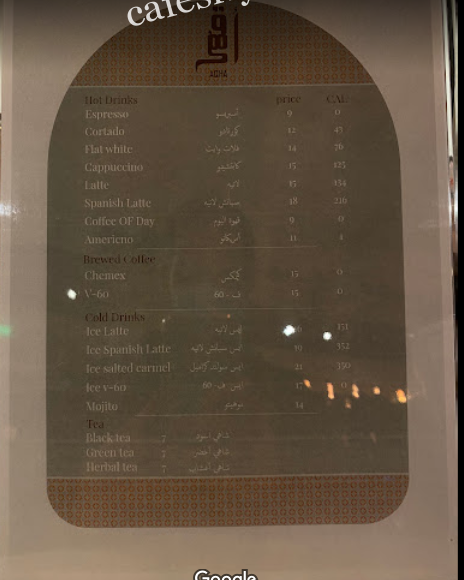 أقهى
AQHA
Hot Drinks price CAL
Espresso اسبريسو 9 0
Cortado كورتادو 12 45
Flat white فلات وايت 14 76
Cappuccino كابتشينو 15 125
Latte لاتيه 15 134
Spanish Latte سبانش لاتيه 18 216
Coffee OF Day قهوة اليوم 9 0
Americno أمريكانو 11
Brewed Coffee
Chemex كيمكس 15 0
V-60 ف - 60 15 0
Cold Drinks
Ice Latte ايس لاتيه 151
Ice Spanish Latte ايس سبانش لاتيه 19 352
Ice salted carmel ايس سولتد كراميل 21 350
Ice v-60 ايس ف- 60 17 0
Mojito موهيتو 14
Tea
Black tea 7 شاهي اسود
Green tea 7 شاهي اخضر
Herbal tea 7 شاهي أعشاب
Google